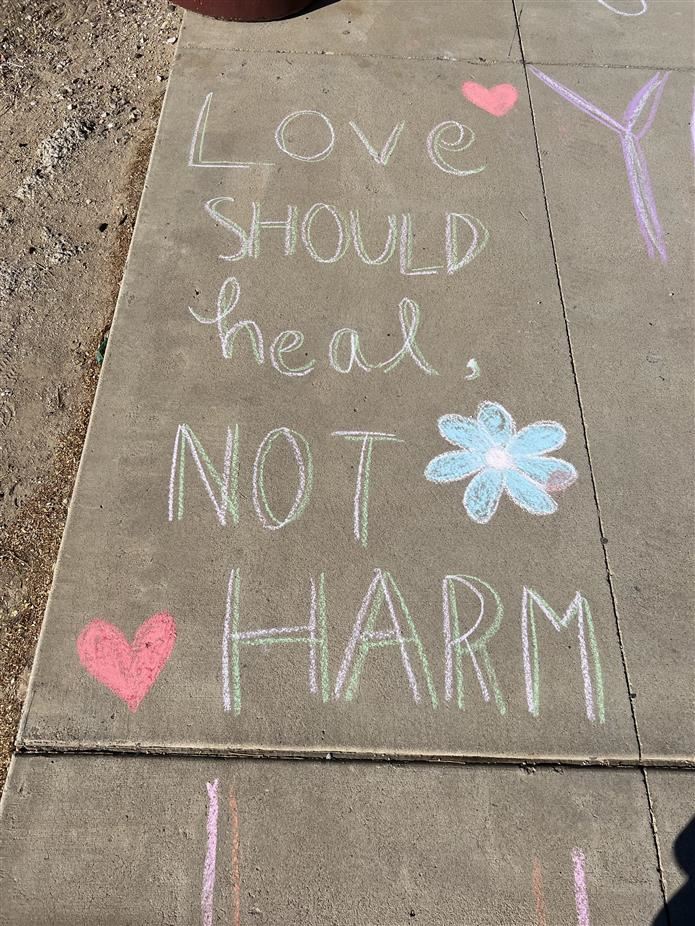 Love
SHOULD
heal,
NOT
HARM
Y